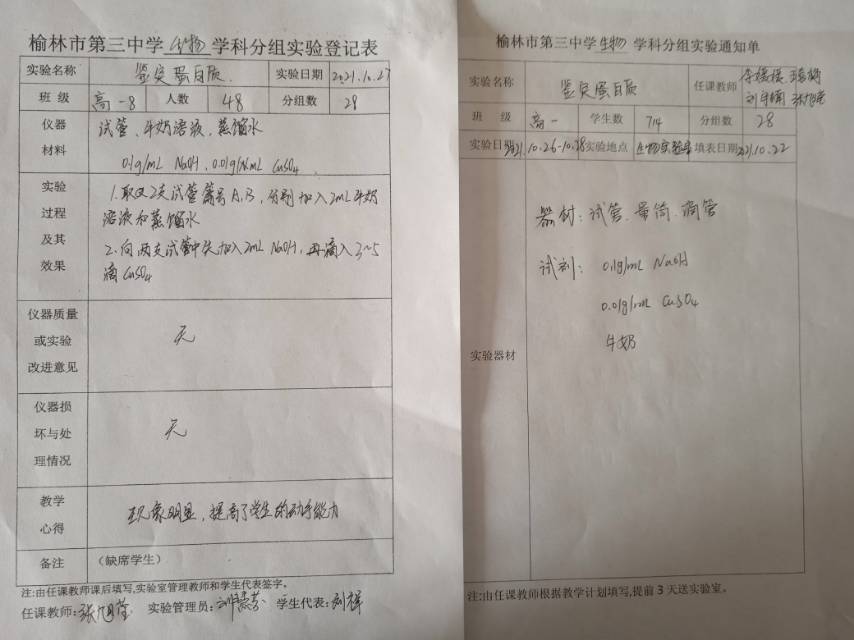 榆林市第三中学生物学科分组实验登记表
实验名称 鉴定蛋白质. 实验日期 2021.10.27
班 级 高一8 人数 48 分组数 28
仪器
材料
试管、牛奶溶液、蒸馏水
0.1g/mL NaOH、0.01g/mL CuSO4
实验
过程
及其
效果
1.取2支试管编号A,B,分别加入2mL牛奶
溶液和蒸馏水
2.向两支试管中先加入2mL NaOH,再滴入3~5
滴CuSO4
仪器质量
或实验
改进意见
无
仪器损
坏与处
理情况
无
教学
心得
现象明显,提高了学生的动手能力
备注 (缺席学生)
注:由任课教师课后填写,实验室管理教师和学生代表签字。
任课教师: 实验管理员: 学生代表:
榆林市第三中学生物学科分组实验通知单
实验名称 鉴定蛋白质 任课教师
班 级 高一 学生数 714 分组数 28
实验日期 2021.10.26-10.28 实验地点 生物实验室 填表日期 2021.10.22
实验器材
器材:试管、量筒、滴管
试剂: 0.1g/mL NaOH
0.01g/mL CuSO4
牛奶
注:由任课教师根据教学计划填写,提前3天送实验室。